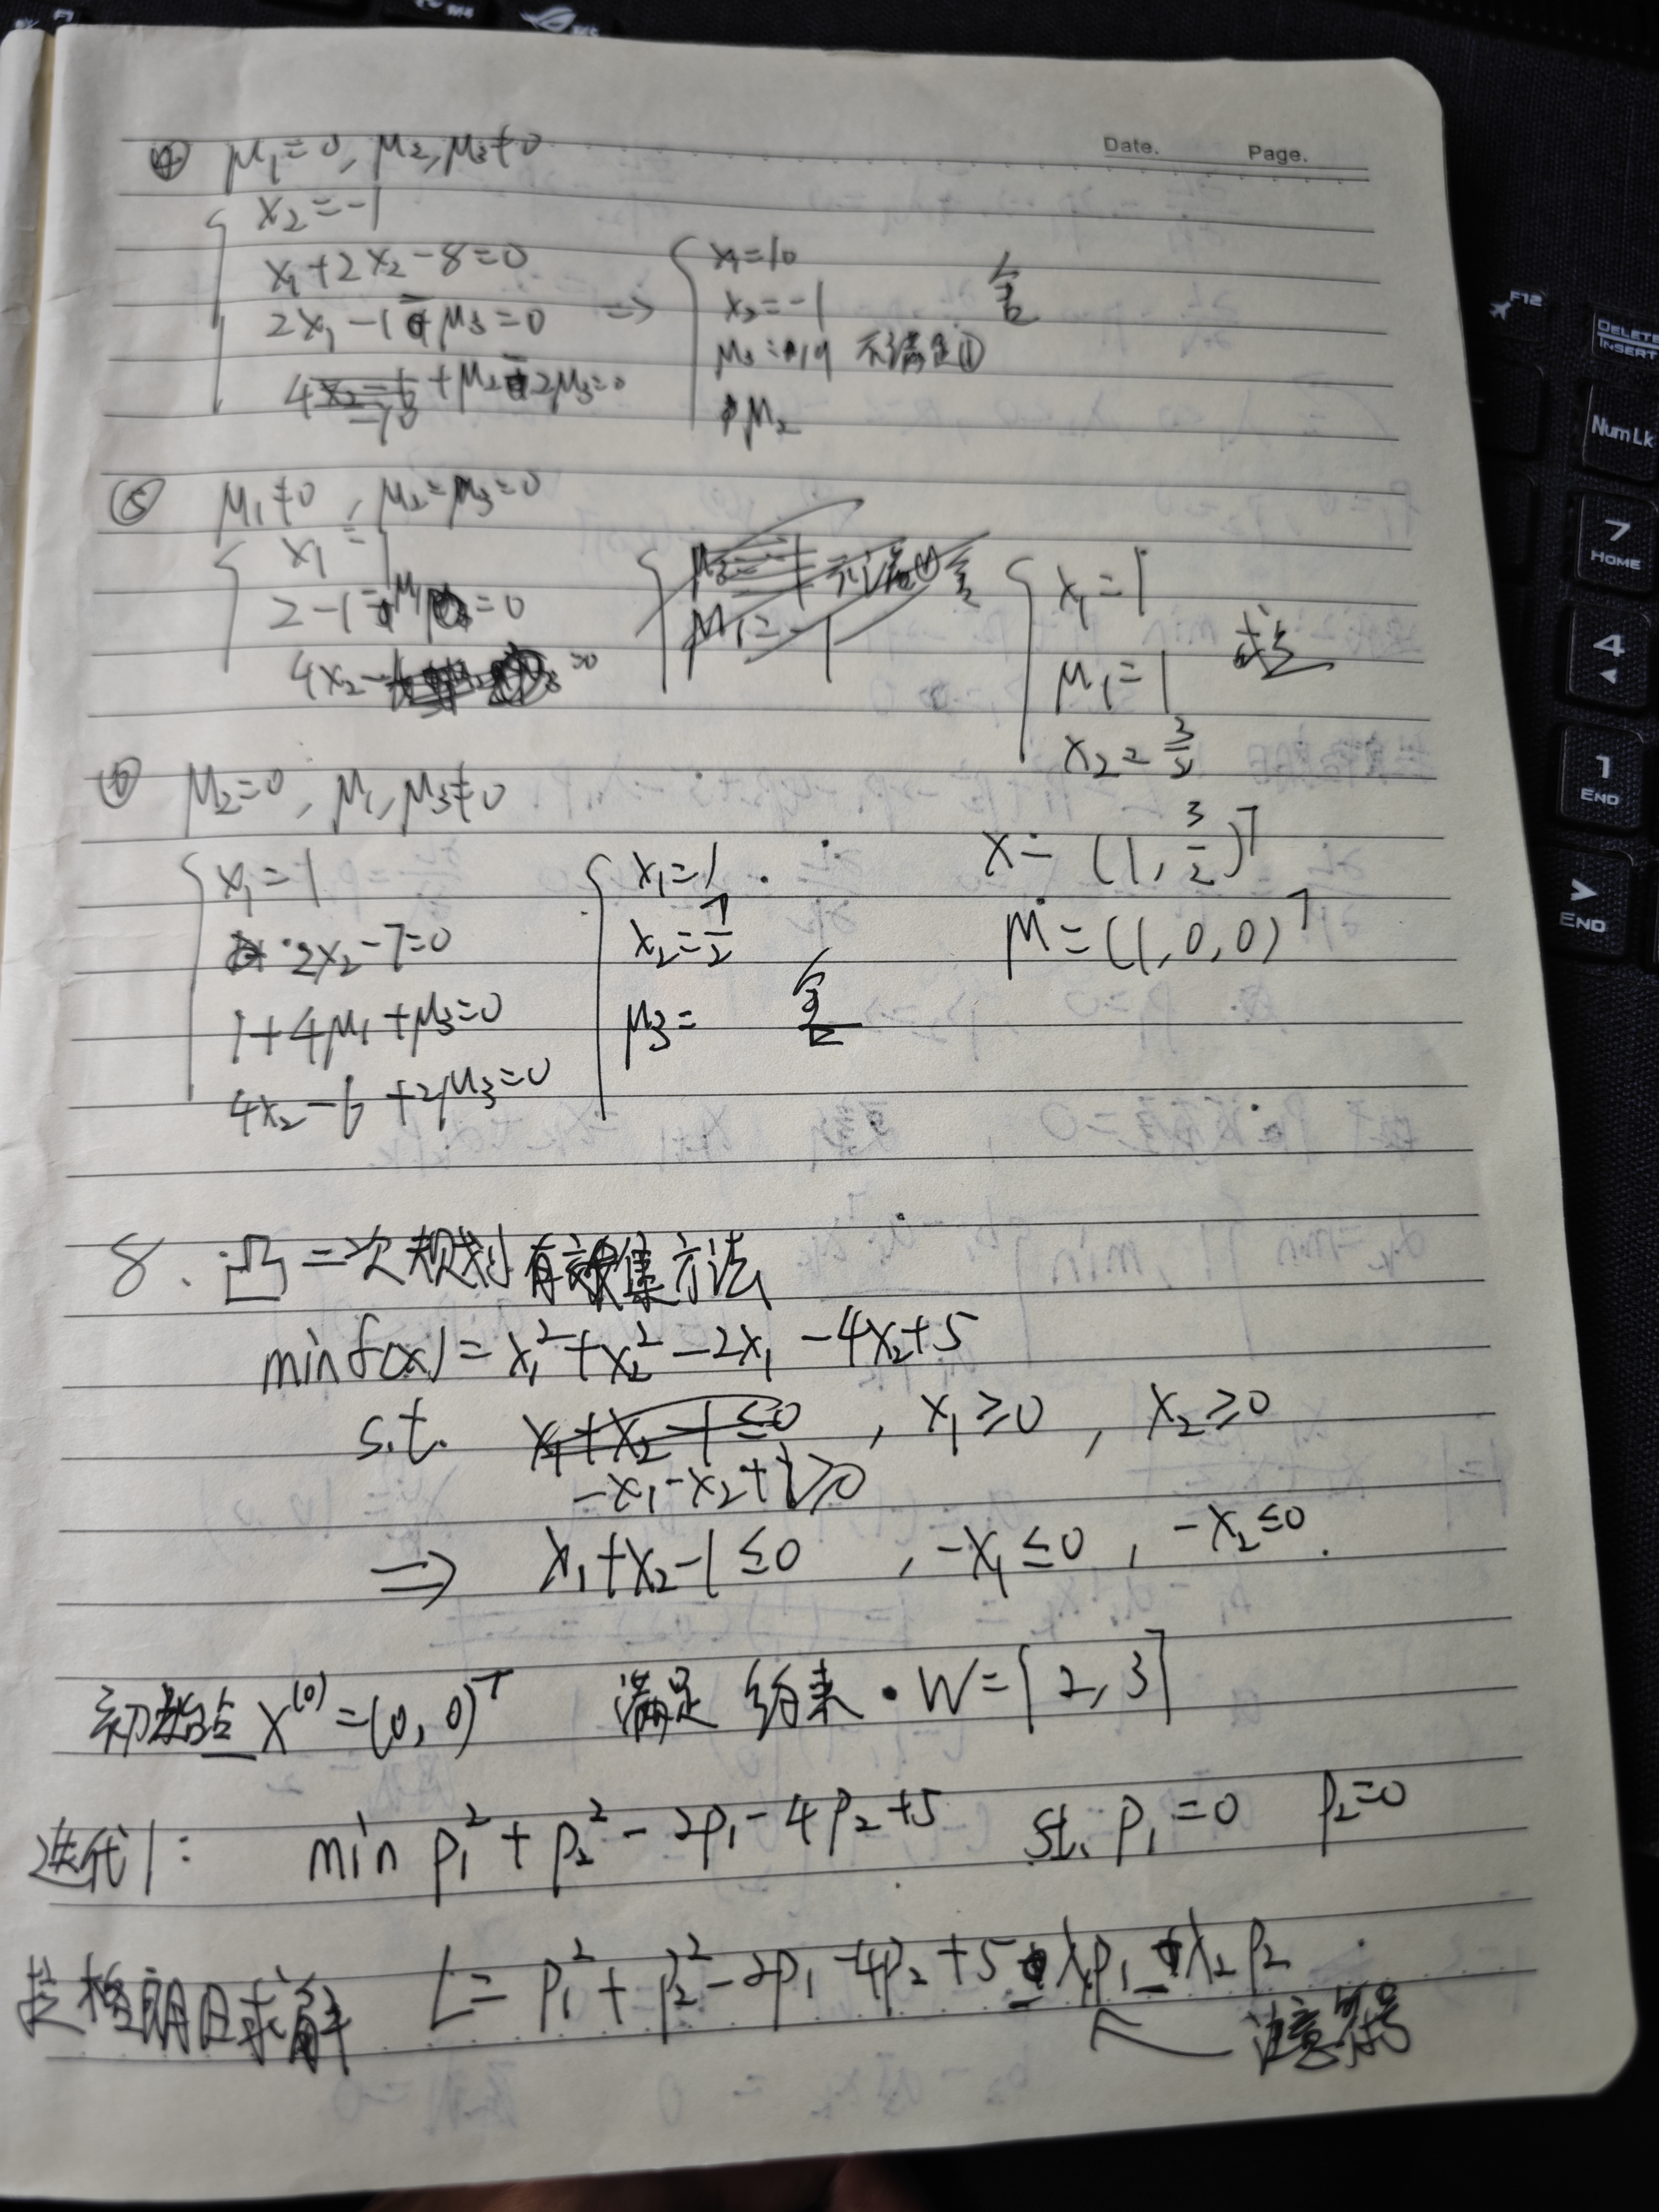 Date. Page.
④ μ₁=0, μ₂,μ₃≠0
x₂=-1
x₁+2x₂-8=0
2x₁-1-μ₃=0
4x₂-6+μ₂-2μ₃=0
=-10
⇒
x₁=10
x₂=-1
μ₃=19 不满足①
μ₂
舍
⑤ μ₁≠0, μ₂=μ₃=0
x₁=1
2-1-μ₁=0
4x₂-6=0
μ₁=-1
x₁=1
μ₁=1
x₂=3/2
⑥ μ₂=0, μ₁,μ₃≠0
x₁=1
2x₂-7=0
1+4μ₁+μ₃=0
4x₂-6+2μ₃=0
x₁=1
x₂=7/2
μ₃=
舍
x=(1,3/2)ᵀ
μ=(1,0,0)ᵀ
8. 凸二次规划有效集方法
min f(x)=x₁²+x₂²-2x₁-4x₂+5
s.t. x₁+x₂-1≤0, x₁≥0, x₂≥0
-x₁-x₂+1≥0
⇒ x₁+x₂-1≤0, -x₁≤0, -x₂≤0.
初始点 x⁽⁰⁾=(0,0)ᵀ 满足约束. W=[2,3]
迭代1: min p₁²+p₂²-2p₁-4p₂+5 st. p₁=0 p₂=0
拉格朗日求解 L=p₁²+p₂²-2p₁-4p₂+5-λ₁p₁-λ₂p₂
注意符号
F12
DELETE
INSERT
Num Lk
7
HOME
4
1
END
END